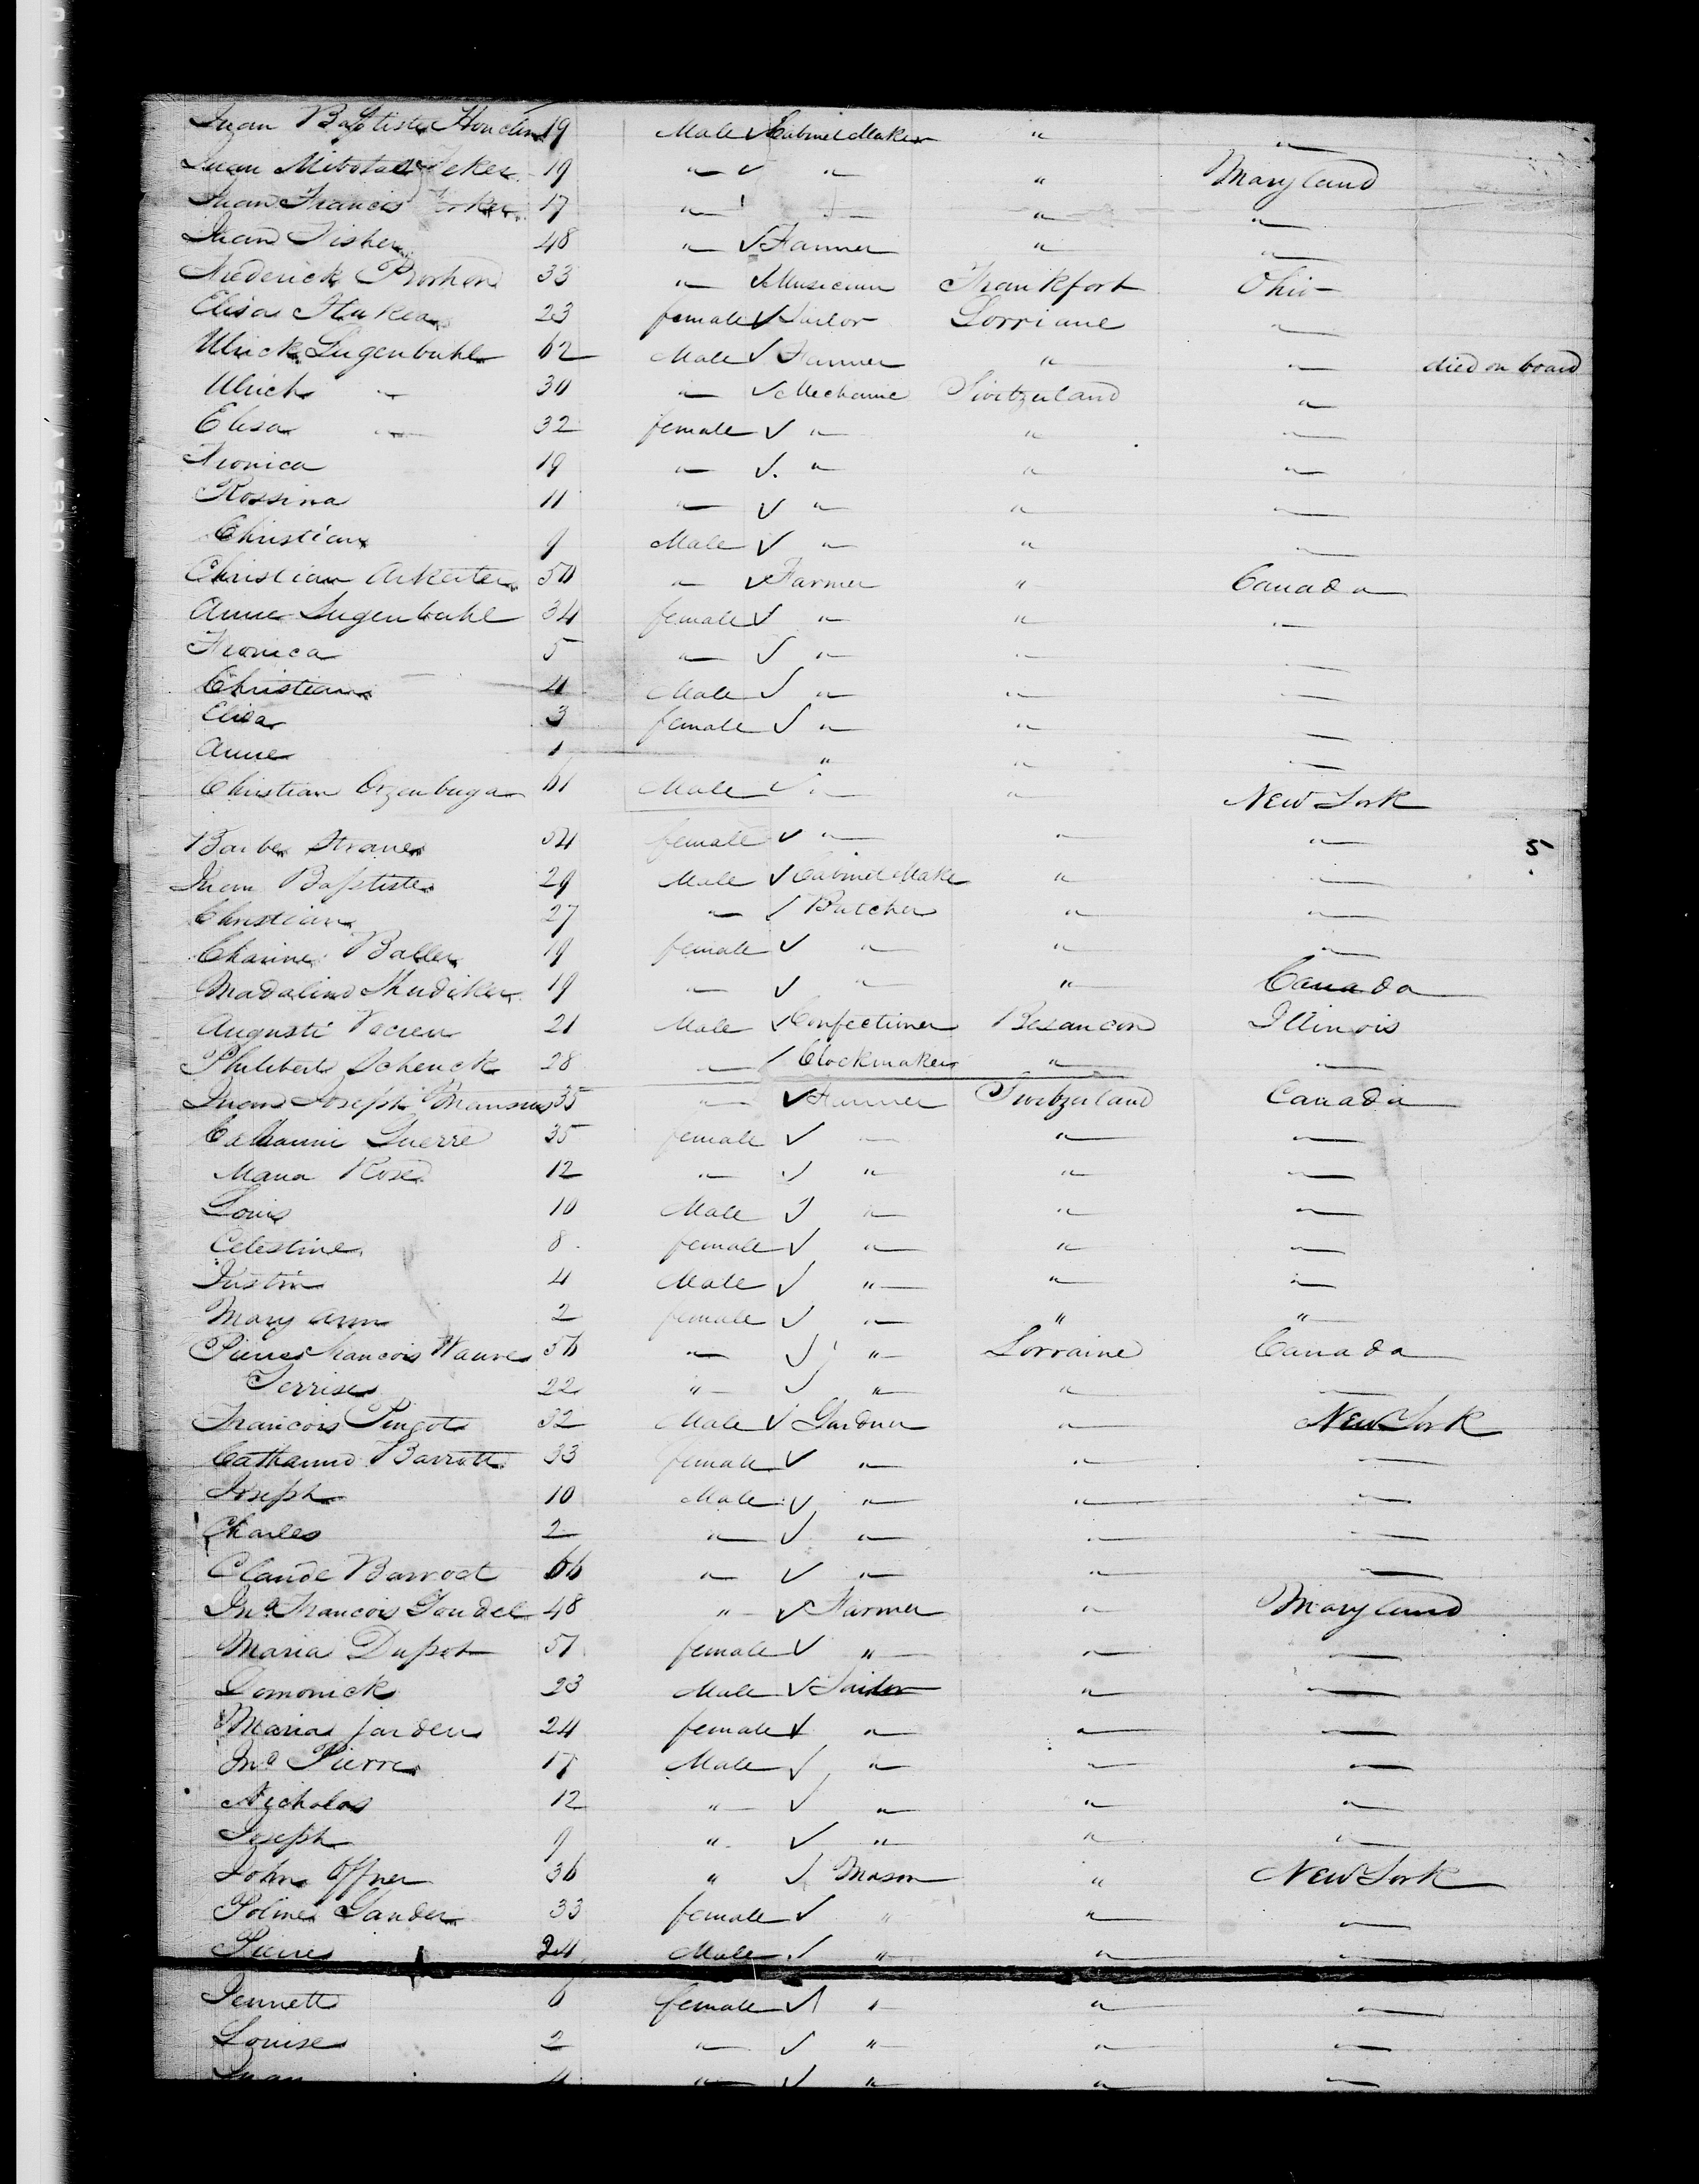 Juan Baptiste Houdin 19 Male ✓ Cabinet Maker " "
Juan 19 " ✓ " " Maryland
Juan Francis 17 " " "
Juan Fisher 48 " ✓ Farmer " "
Frederick 33 " ✓ Musician Frankfort Ohio
Elisa 23 female ✓ Tailor Lorriane "
Ulrick Lugenbuhl 62 Male ✓ Farmer " " died on board
Ulrich " 30 " ✓ Mechanic Switzerland "
Elisa " 32 female ✓ " " "
Fronica 19 " ✓ " " "
Rossina 11 " ✓ " " "
Christian 9 Male ✓ " " "
Christian 50 " ✓ Farmer " Canada
Anne Lugenbuhl 34 female ✓ " " "
Fronica 5 " ✓ " " "
Christian 4 Male ✓ " " "
Elisa 3 female ✓ " " "
Anne 1 " " "
Christian 61 Male ✓ " " New York
Barbe 54 female ✓ " " "
Juan Baptiste 29 Male ✓ Cabinet Make " "
Christian 27 " ✓ Butcher " "
Baller 19 female ✓ " " "
Madaline 19 " ✓ " " Canada
Auguste 21 Male ✓ Confectioner Besancon Illinois
Philibert Schenck 28 " ✓ Clockmaker " "
Juan Joseph 35 " ✓ Farmer Switzerland Canada
Catharine Guerre 35 female ✓ " " "
Maria Rose 12 " ✓ " " "
Louis 10 Male ✓ " " "
Celestine 8 female ✓ " " "
Justin 4 Male ✓ " " "
Mary Ann 2 female ✓ " " "
Pierre Francois 56 " ✓ " Lorraine Canada
Terrise 22 " ✓ " " "
Francois Pingot 32 Male ✓ Gardner " New York
Catharine Barrott 33 female ✓ " " "
Joseph 10 Male ✓ " " "
Charles 2 " ✓ " " "
Claude Barroct 66 " ✓ " " "
Jno Francois 48 " ✓ Farmer " Maryland
Maria Dupot 51 female ✓ " " "
Domonick 23 Male ✓ Tailor " "
Maria Jarden 24 female ✓ " " "
Jno Pierre 17 Male ✓ " " "
Nicholas 12 " ✓ " " "
Joseph 9 " ✓ " " "
John Offner 36 " ✓ Mason " New York
Poline Gander 33 female ✓ " " "
Pierre 24 Male ✓ " " "
Jennett 6 female ✓ " " "
Louise 2 " ✓ " " "
Juan 4 " ✓ " " "
5